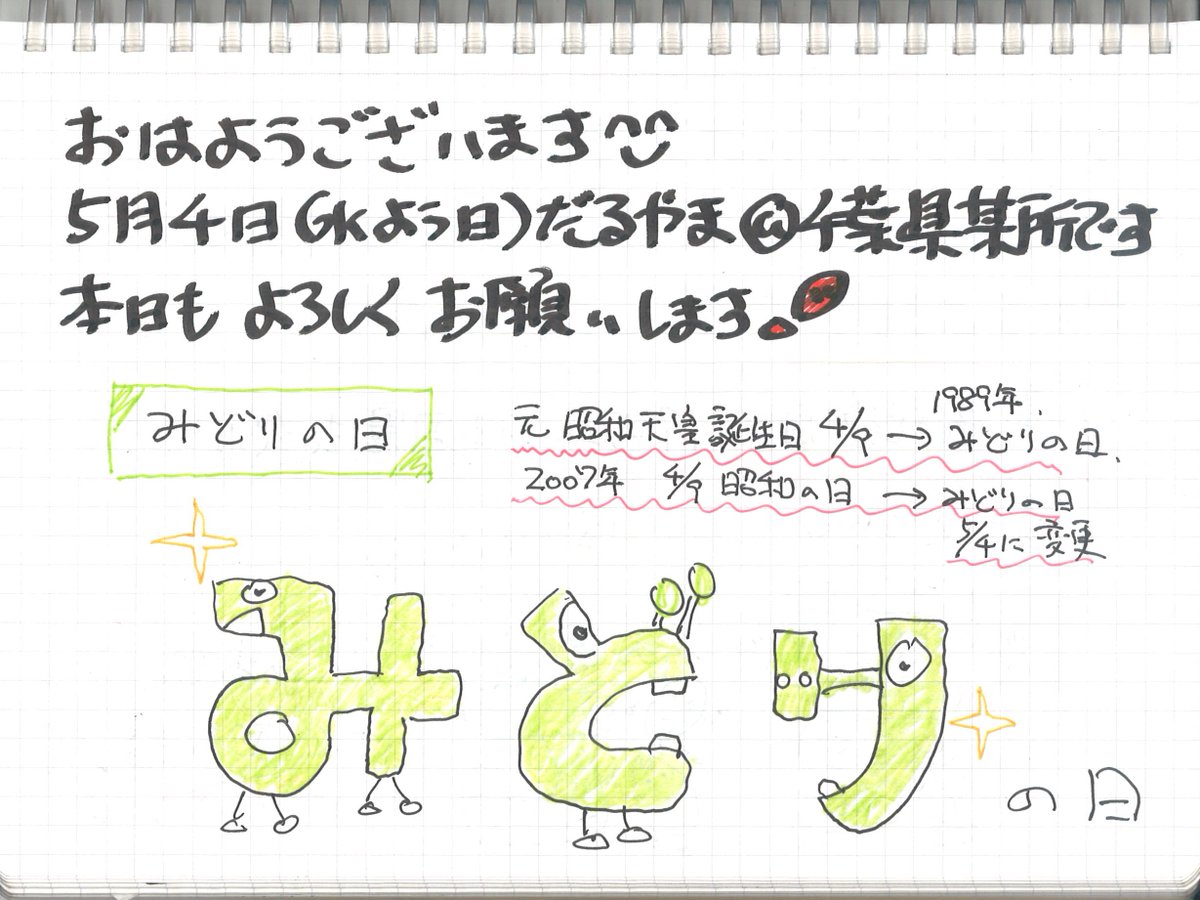 おはようございます^^
5月4日(水よう日)だるやま@千葉県某所です
本日もよろしくお願いします!
みどりの日
1989年.
元 昭和天皇誕生日 4/9 → みどりの日.
2007年 4/9 昭和の日 → みどりの日
5/4に変更
みどり
の日